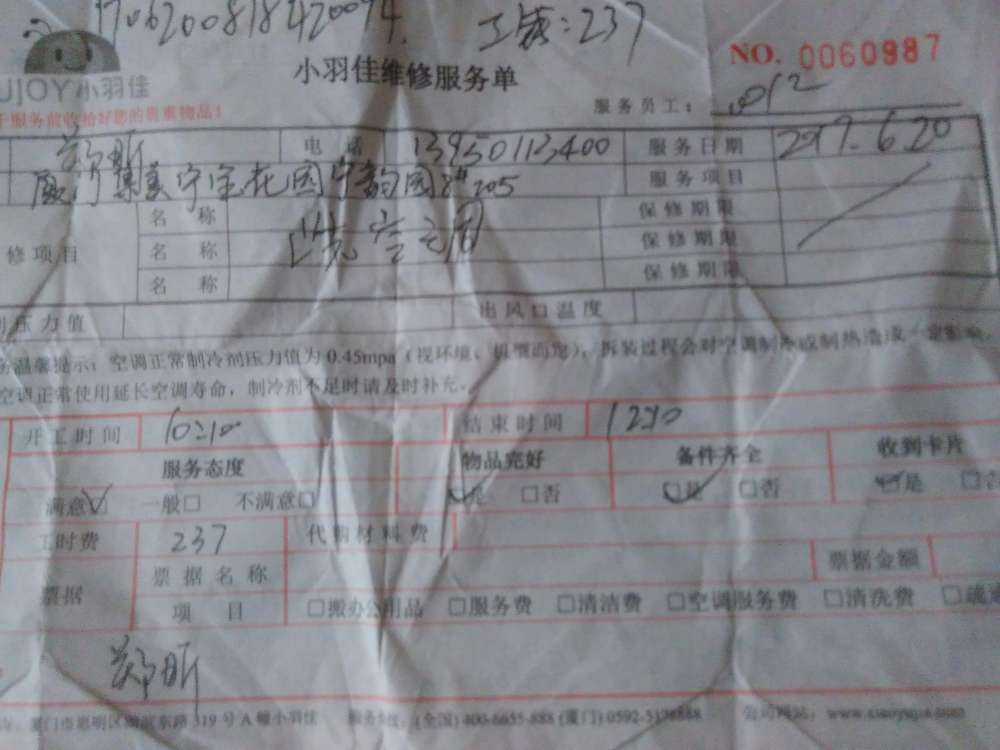 170620081842 0094. 工钱:237
NO. 0060987
UJOY小羽佳 小羽佳维修服务单
服务员工:
服务前收拾好您的贵重物品!
郑昕 电话 13950113400 服务日期 2017.6.20
厦门集美宁宝花园宁韵园2# 205 服务项目
名称 保修期限
修项目 名称 洗空调 保修期限
名称 保修期限
压力值 出风口温度
务温馨提示:空调正常制冷剂压力值为0.45mpa(视环境、机型而定),拆装过程会对空调制冷或制热造成一定影响,
空调正常使用延长空调寿命,制冷剂不足时请及时补充。
开工时间 10:10 结束时间 1210
服务态度 物品完好 备件齐全 收到卡片
满意☑ 一般□ 不满意□ ☑是 □否 ☑是 □否 ☑是 □否
工时费 237 代购材料费
票据 票据名称 票据金额
项目 □搬办公用品 □服务费 □清洁费 □空调服务费 □清洗费 □疏通
郑昕
厦门市思明区湖滨东路319号A幢小羽佳 服务热线:(全国)400-6655-888 (厦门)0592-5178888 公司网站:www.xiaoyujia.com